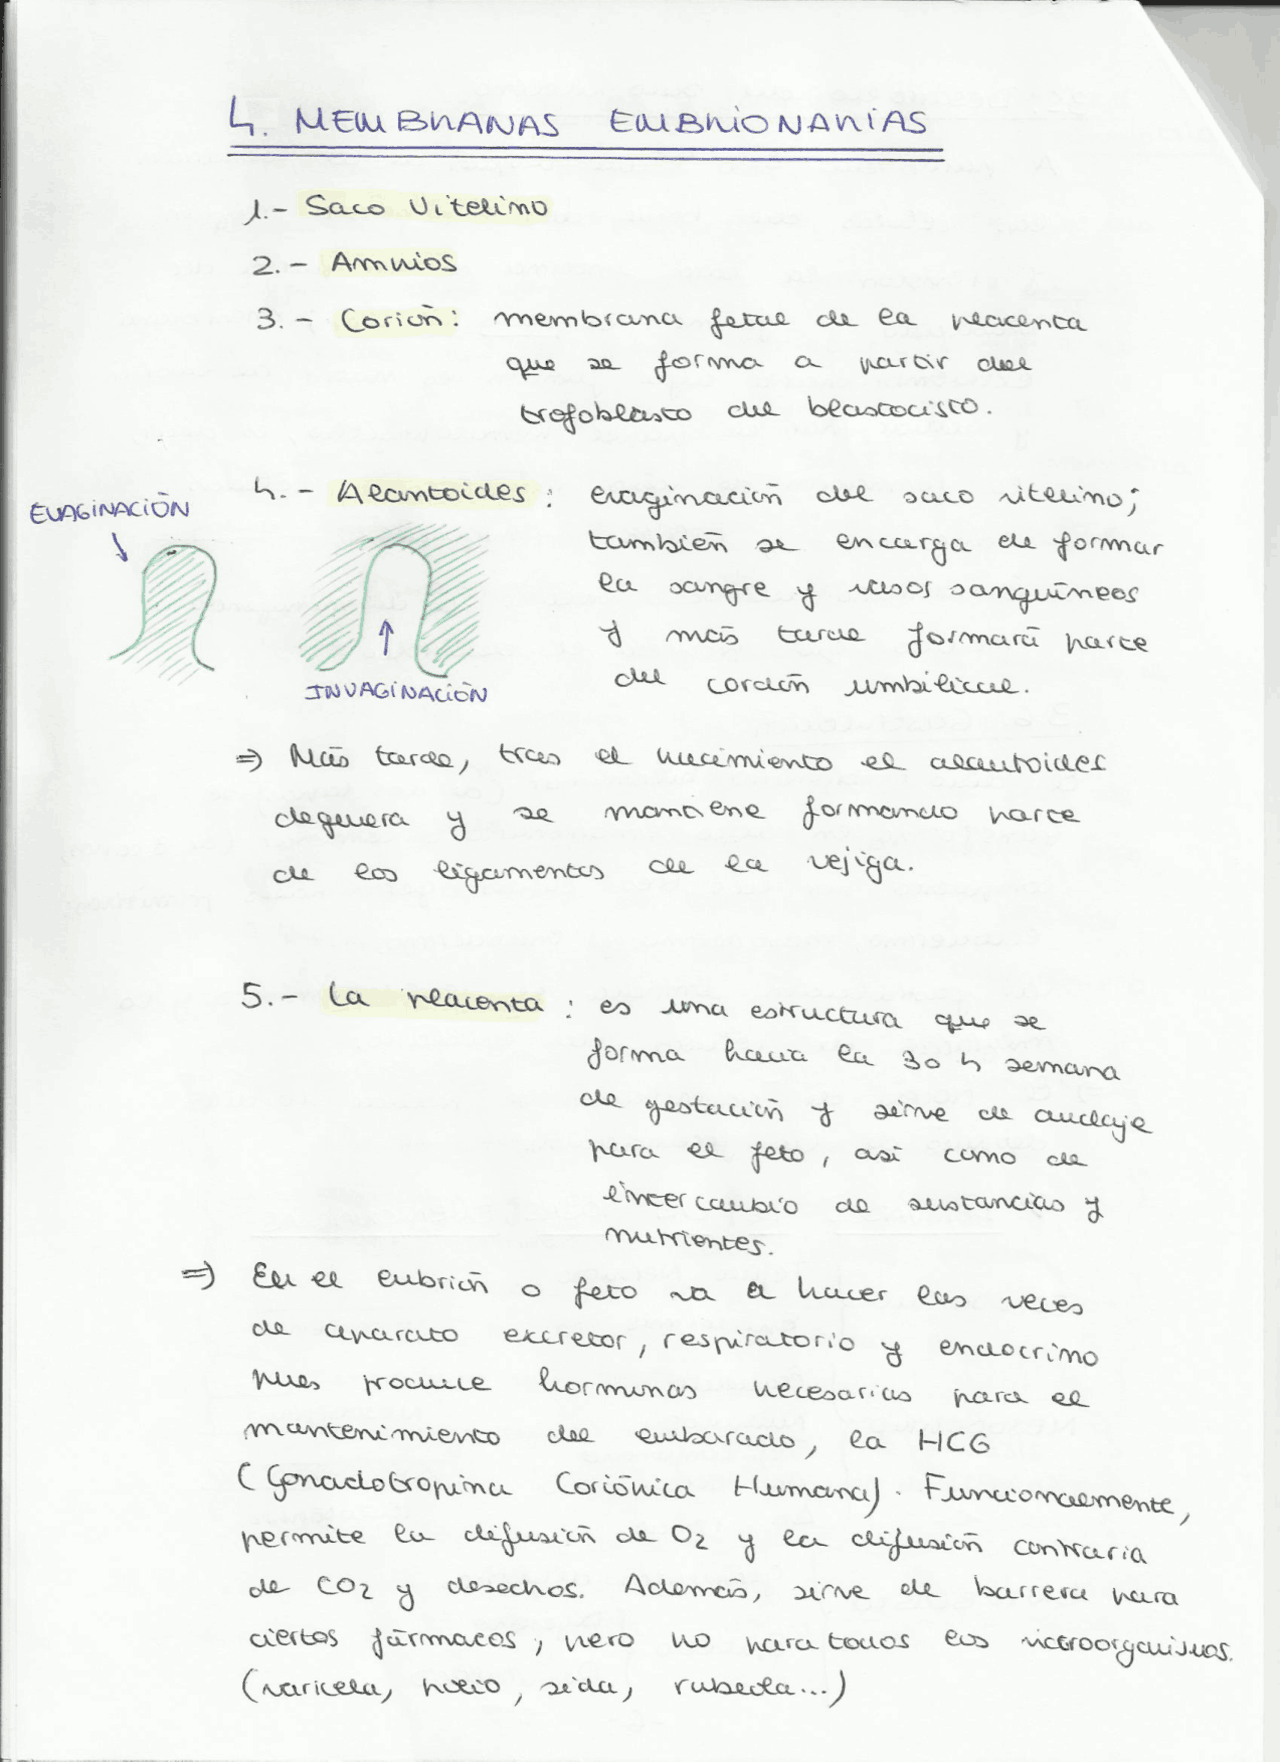 4. MEMBRANAS EMBRIONARIAS
1.- Saco Vitelino
2.- Amnios
3.- Corión: membrana fetal de la placenta
que se forma a partir del
trofoblasto del blastocisto.
4.- Alantoides: evaginación del saco vitelino;
también se encarga de formar
la sangre y vasos sanguíneos
y más tarde formará parte
del cordón umbilical.
EVAGINACIÓN
INVAGINACIÓN
⇒ Más tarde, tras el nacimiento el alantoides
degenera y se mantiene formando parte
de los ligamentos de la vejiga.
5.- La placenta: es una estructura que se
forma hacia la 3 o 4 semana
de gestación y sirve de anclaje
para el feto, así como de
intercambio de sustancias y
nutrientes.
⇒ En el embrión o feto va a hacer las veces
de aparato excretor, respiratorio y endocrino
pues produce hormonas necesarias para el
mantenimiento del embarazo, la HCG
(Gonadotropina Coriónica Humana). Funcionalmente,
permite la difusión de O2 y la difusión contraria
de CO2 y desechos. Además, sirve de barrera para
ciertos fármacos, pero no para todos los microorganismos.
(varicela, polio, sida, rubeola...)